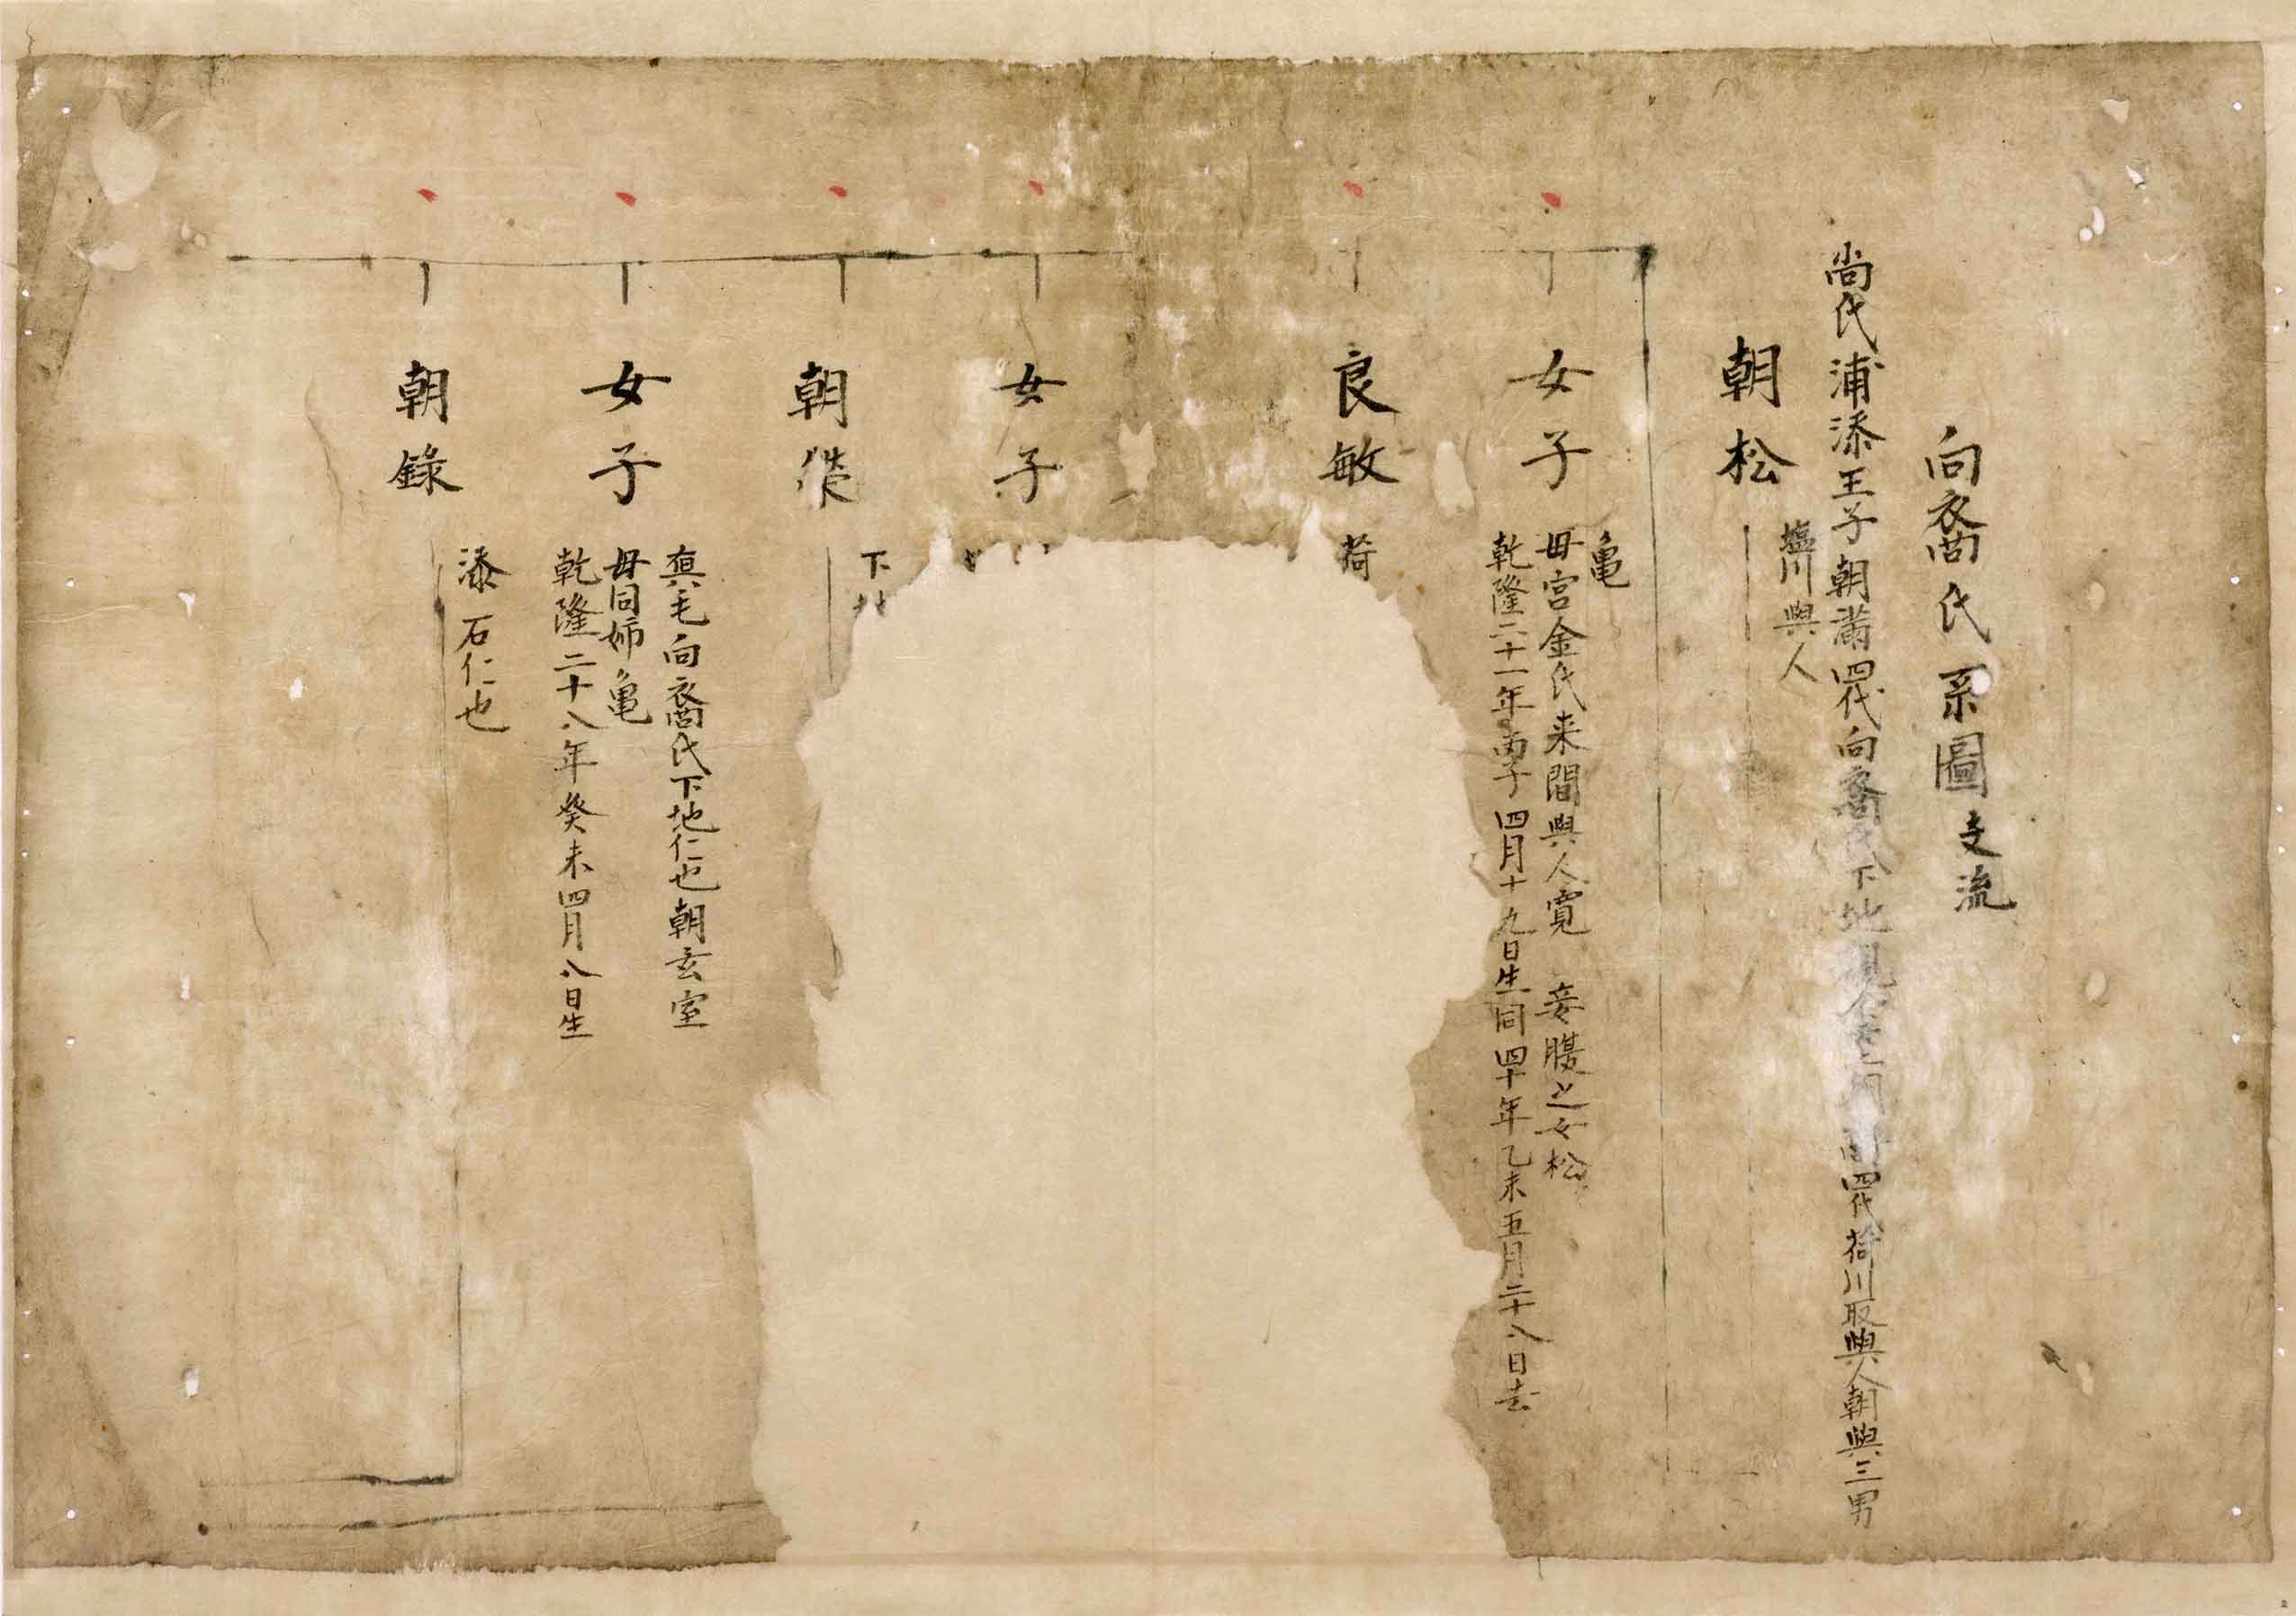 向裔氏系圖支流
尚氏浦添王子朝滿四代向裔氏下地 四代荷川取與人朝與三男
朝松
塩川與人
女子
亀
母宮金氏来間與人寛 妾腹之女松
乾隆二十一年丙子四月十九日生同四十年乙未五月二十八日去
良敏
荷
女子
朝
下
女子
真毛向裔氏下地仁也朝玄室
母同姉亀
乾隆二十八年癸未四月八日生
朝錄
添石仁也